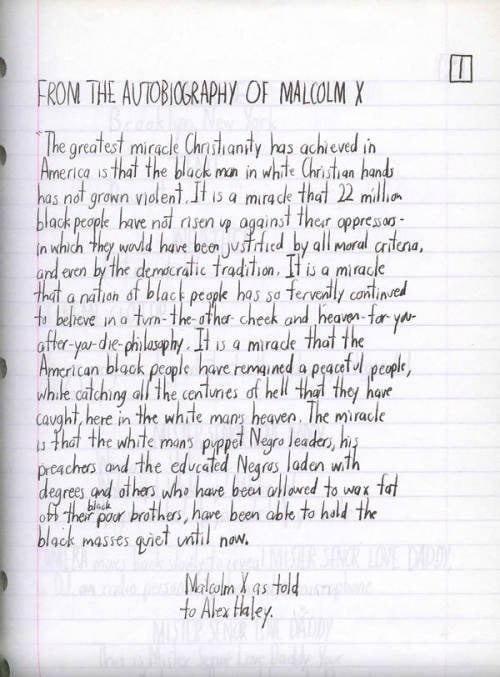 1
FROM THE AUTOBIOGRAPHY OF MALCOLM X
"The greatest miracle Christianity has achieved in
America is that the black man in white Christian hands
has not grown violent. It is a miracle that 22 million
black people have not risen up against their oppressors-
in which they would have been justified by all moral criteria,
and even by the democratic tradition. It is a miracle
that a nation of black people has so fervently continued
to believe in a turn-the-other cheek and heaven-for-you-
after-you-die-philosophy. It is a miracle that the
American black people have remained a peaceful people,
while catching all the centuries of hell that they have
caught, here in the white man's heaven. The miracle
is that the white man's puppet Negro leaders, his
preachers and the educated Negros laden with
degrees and others who have been allowed to wax fat
off their black poor brothers, have been able to hold the
black masses quiet until now.
Malcolm X as told
to Alex Haley.
MISTER SENOR LOVE DADDY